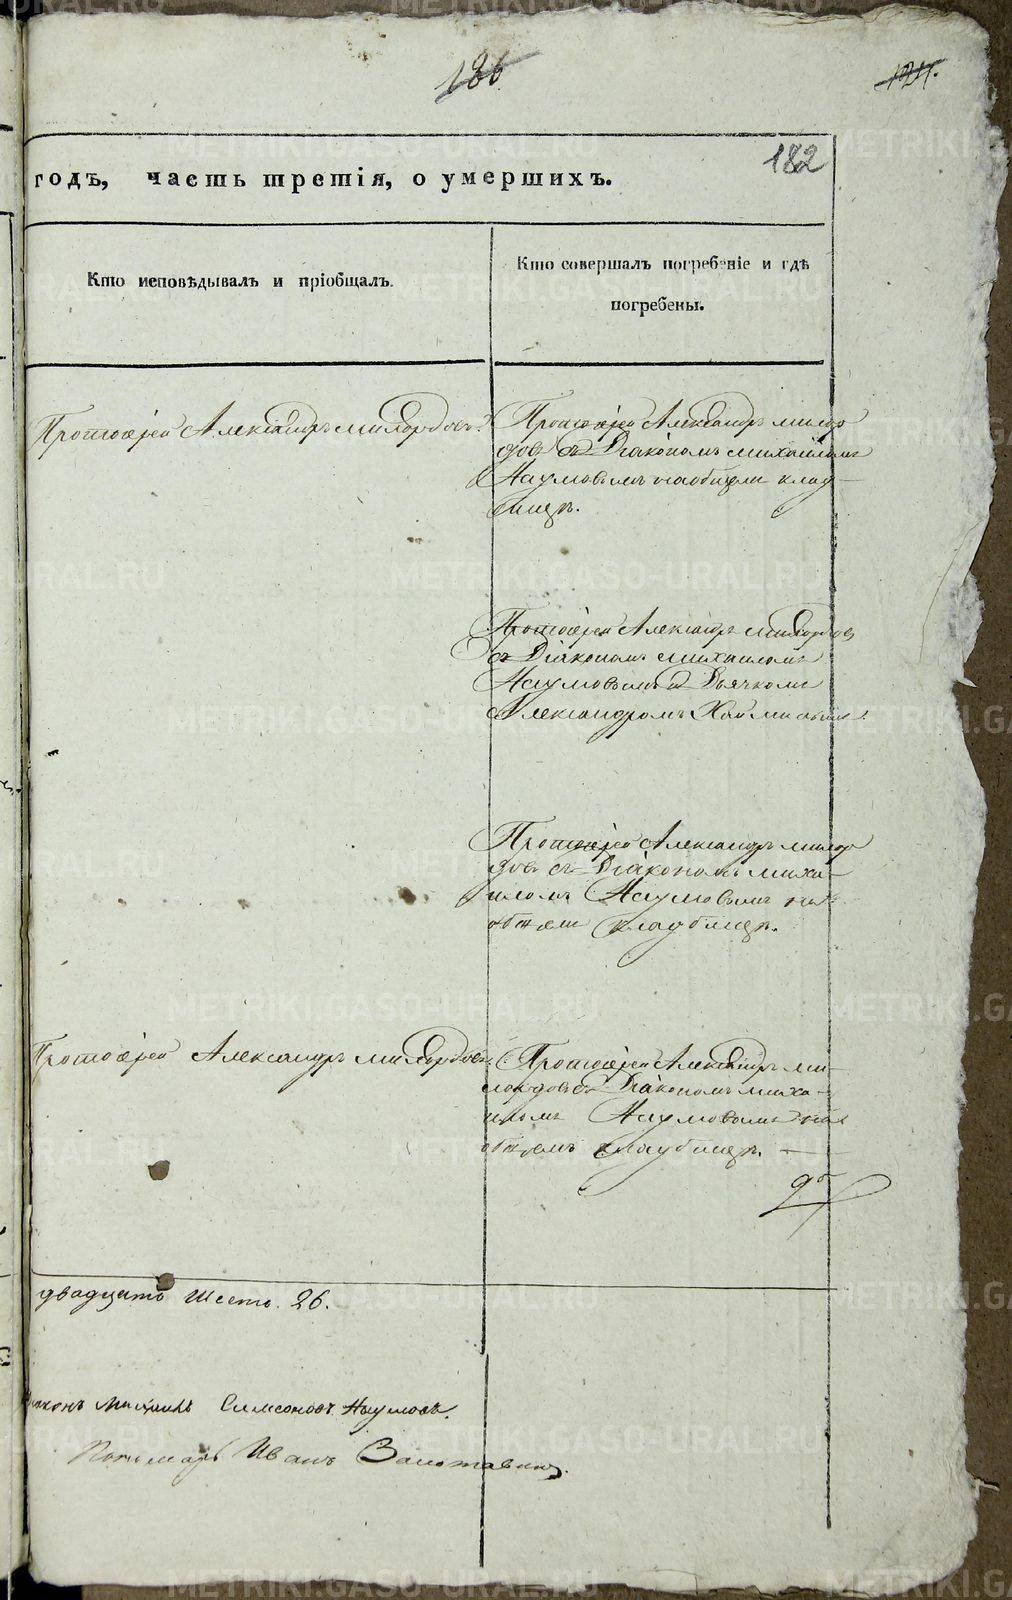 186.
121.
182
годъ, часть третія, о умершихъ.
Кто исповѣдывалъ и пріобщалъ.
Кто совершалъ погребеніе и гдѣ
погребены.
Протоіерей Александръ Милордовъ.
Протоіерей Александръ Милор
довъ съ Діакономъ Михаиломъ
Наумовымъ на общем клад-
бищѣ.
Протоіерей Александръ Милордовъ
съ Діакономъ Михаиломъ
Наумовымъ и Дьячкомъ
Александромъ
Протоіерей Александръ Милор
довъ съ Діакономъ Миха-
иломъ Наумовымъ на
общем кладбищѣ.
Протоіерей Александръ Милордовъ
Протоіерей Александръ Ми-
лордовъ съ Діакономъ Миха-
иломъ Наумовымъ на
общемъ кладбищѣ.
двадцать шесть. 26.
Михаилъ Симеоновъ Наумовъ.
Пономарь Иванъ
METRIKI.GASO-URAL.RU